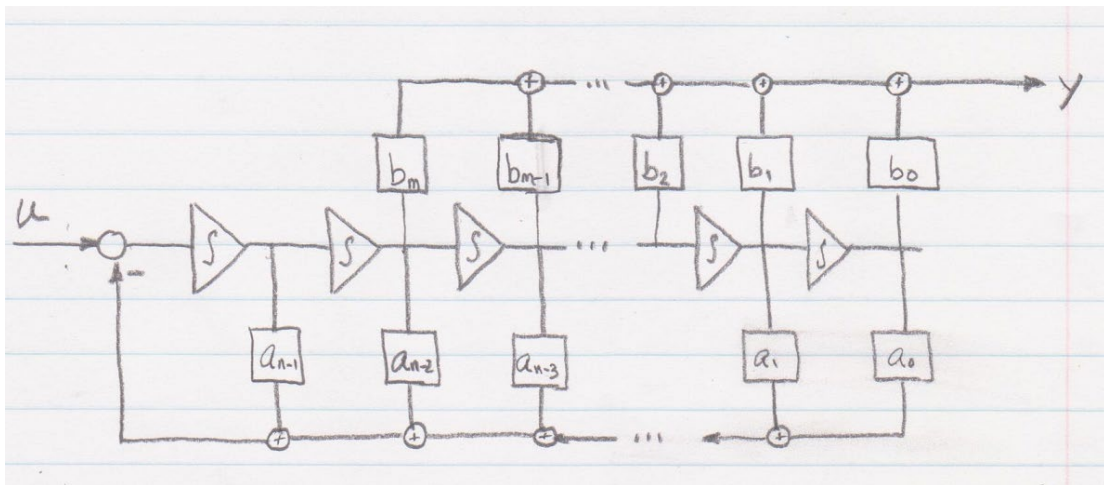 + ... + + +
y
b_m b_{m-1} b_2 b_1 b_0
u
∫ ∫ ∫ ... ∫ ∫
-
a_{n-1} a_{n-2} a_{n-3} a_1 a_0
+ + + ... +